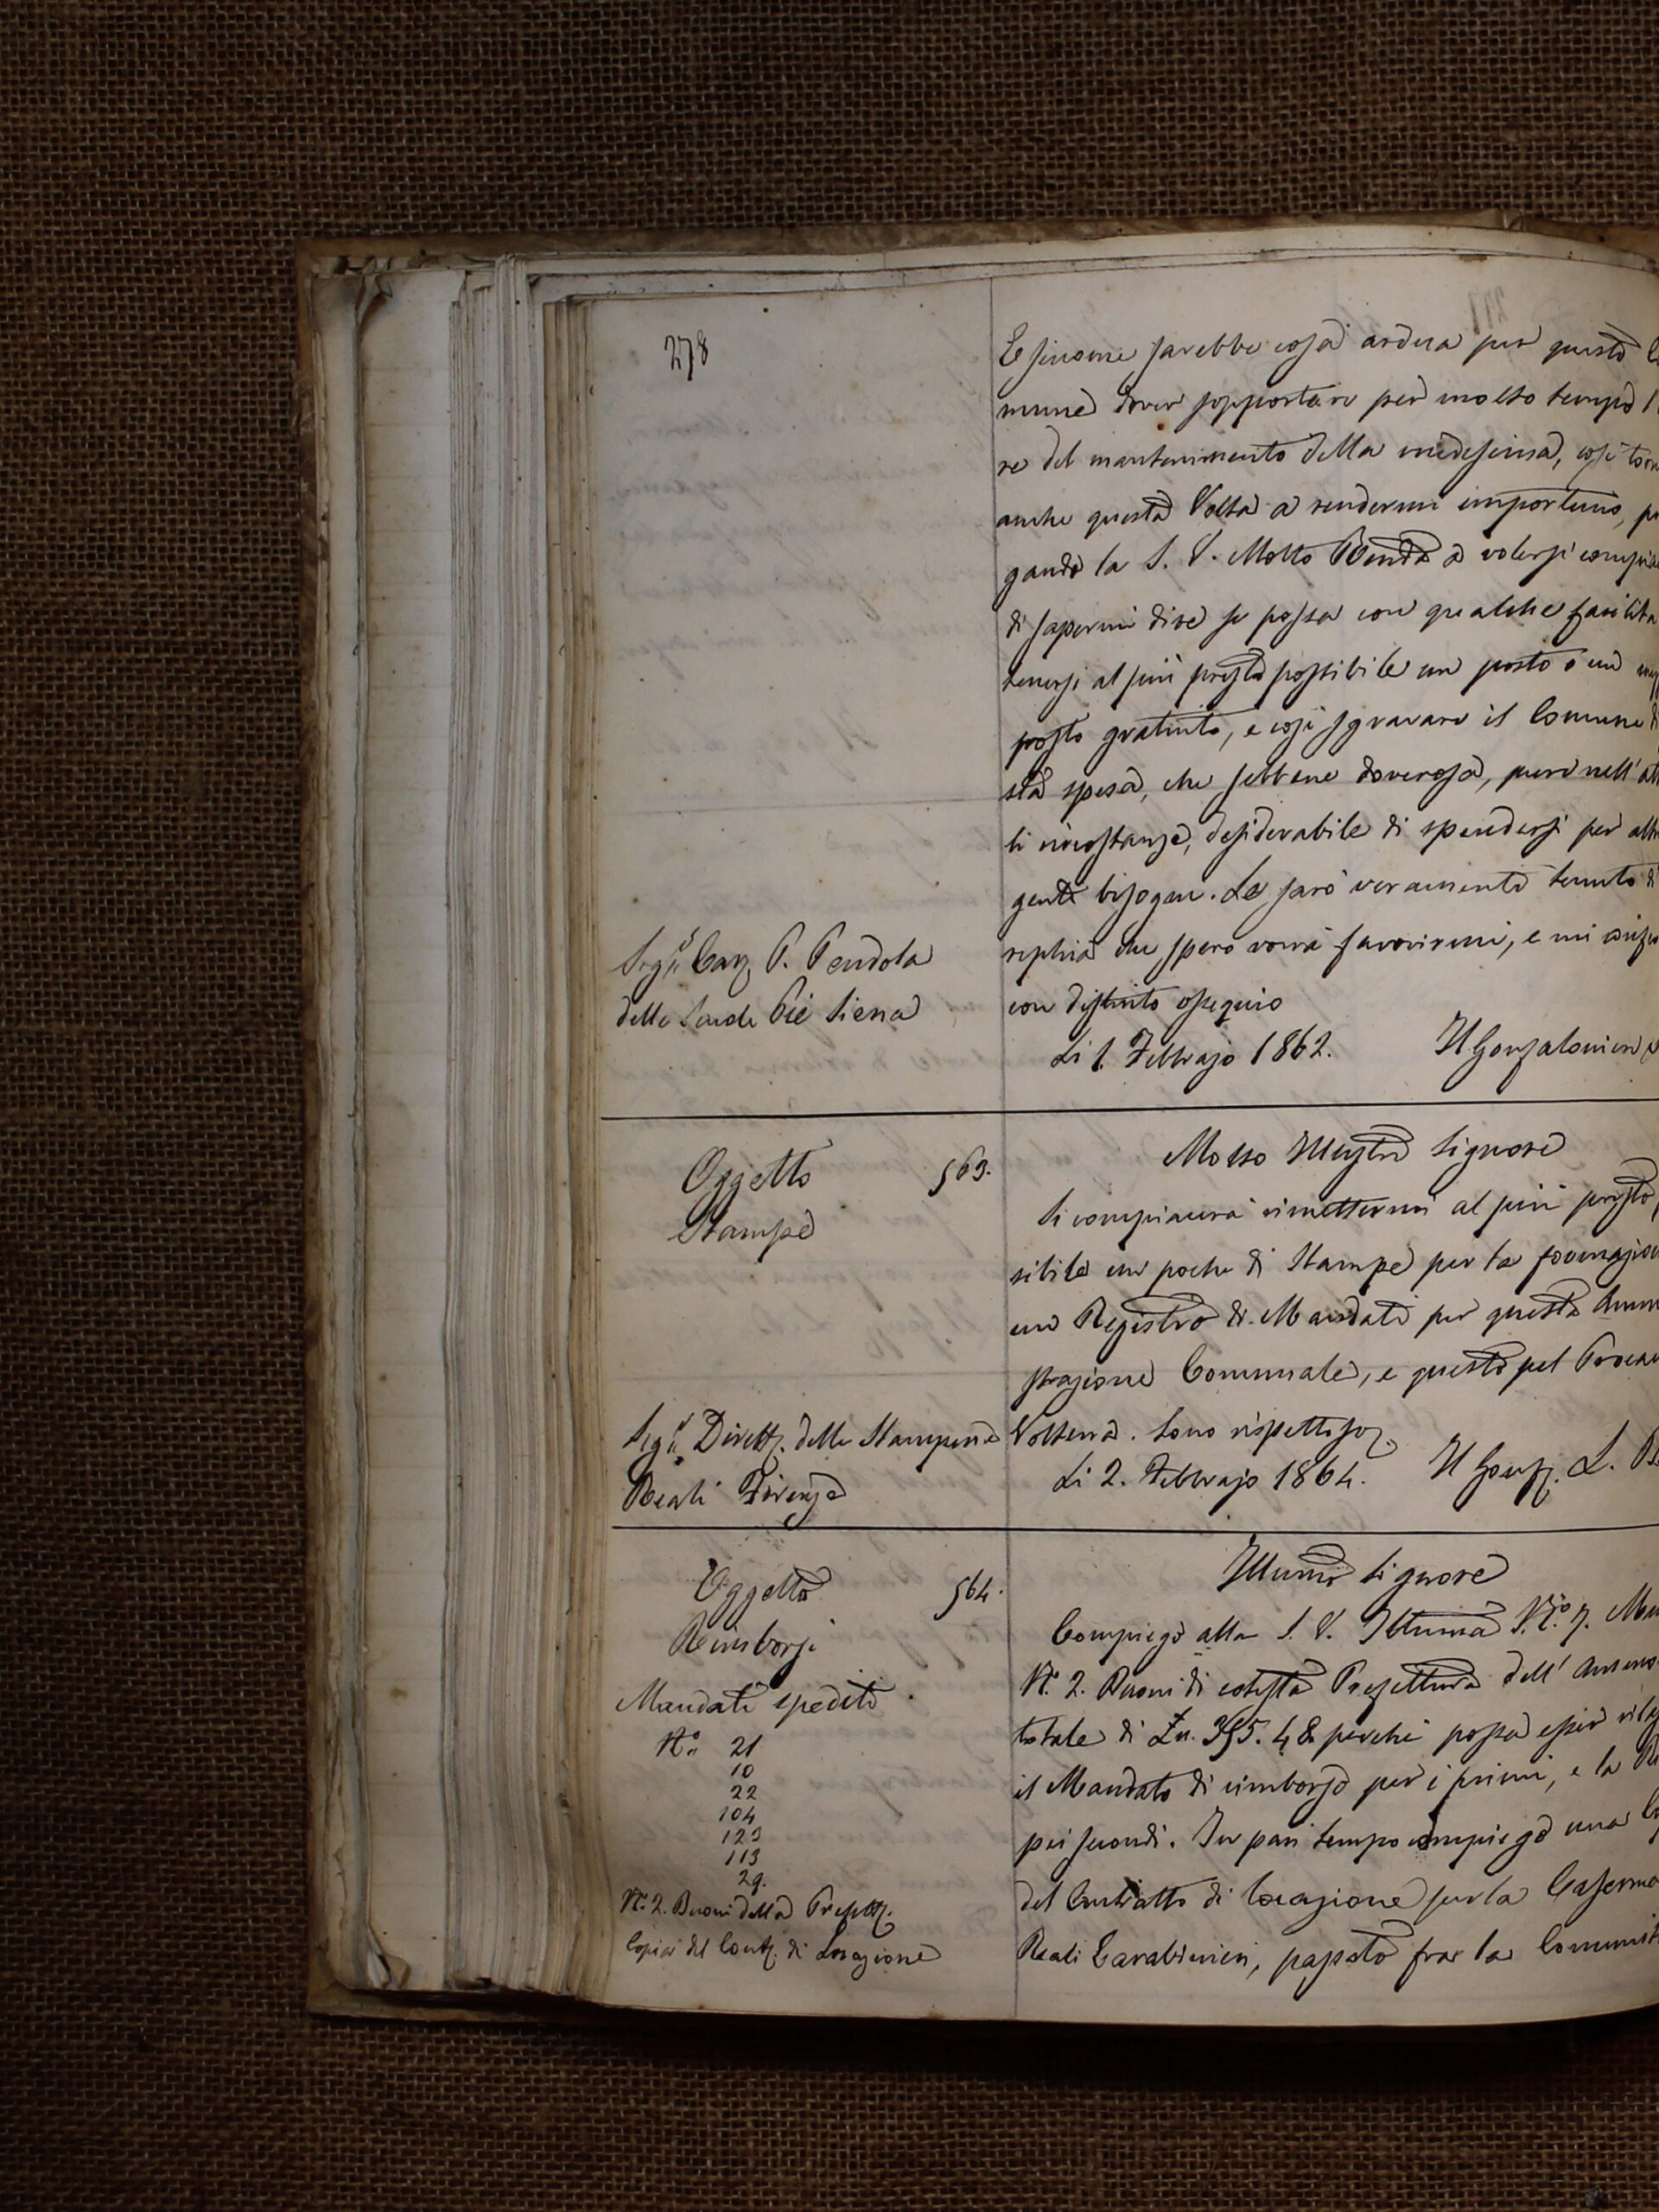 278
E siccome sarebbe cosa ardua per questo Co
mune dover sopportare per molto tempo l'
re del mantenimento della medesima, così torn
anche questa Volta a rendermi importuno, pr
gando la S. V. Molto Renda a volersi compia
di sapermi dire se possa con qualche facilità
tenersi al più presto possibile un posto o un
posto gratuito, e così sgravare il Comune di
sta spesa, che sebbene doverosa, pure nell' at
li circostanze, desiderabile di spendersi per alt
genti bisogni. Le sarò veramente tenuto di
replica che spero vorrà favorirmi, e mi
con distinto ossequio
Li 1. Febbrajo 1862. Il Gonfaloniere
Sigr Cav. P. Pendola
delle Scuole Pie Siena
Oggetto 563.
Stampe
Molto Illustre Signore
Si compiacerà rimettermi al più presto
sibile un poche di Stampe per la formazion
un Registro di Mandati per questa Amm
strazione Comunale, e questo pel Procac
Volterra. Sono rispettos.
Li 2. Febbrajo 1864. Il Gonf. L. B
Sigr Dirett. delle Stamperie
Reali Firenze
Oggetto 564.
Rimborsi
Illumo Signore
Mandati spediti
No. 21
10
22
104
123
113
29.
N. 2. Buoni della Prefett.
Copia del Cont. di Locazione
Compiego alla S. V. Illuma N.o 7. Man
N. 2. Buoni di cotesta Prefettura dell' ammon
totale di Ln. 395. 48 perchè possa esser rila
il Mandato di rimborso per i primi, e la
pei secondi. In pari tempo compiego una Co
del Contratto di locazione per la Caserma
Reali Carabinieri, passato fra la Comunit